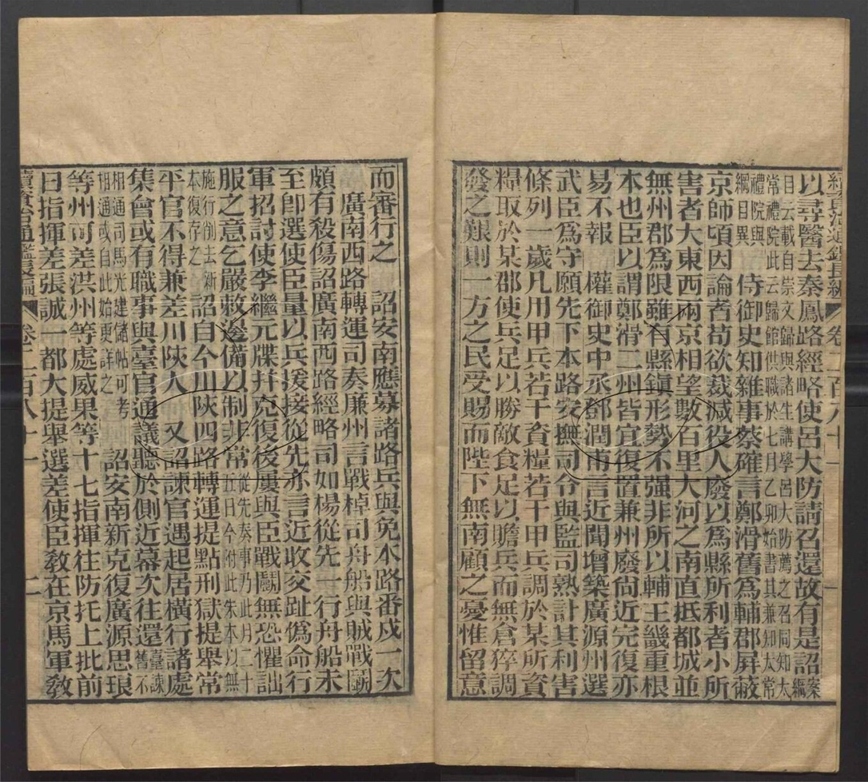 續資治通鑑長編 卷二百八十一
以尋醫去秦鳳路經略使呂大防請召還故有是詔案編
目云載自崇文歸與諸生講學呂大防薦之召同知太
常禮院此云歸館供職於七月乙卯始書其兼知太常
禮院與
綱目異 侍御史知雜事蔡確言鄭滑舊為輔郡屏蔽
京師頃因論者苟欲裁減役人廢以為縣所利者小所
害者大東西兩京相望數百里大河之南直抵都城並
無州郡為限雖有縣鎮形勢不强非所以輔王畿重根
本也臣以謂鄭滑二州皆宜復置兼州廢尚近完復亦
易不報 權御史中丞鄧潤甫言近聞增築廣源州選
武臣為守願先下本路安撫司令與監司熟計其利害
條列一歲凡用甲兵若干資糧若干甲兵調於某所資
糧取於某郡使兵足以勝敵食足以贍兵而無倉猝調
發之艱則一方之民受賜而陛下無南顧之憂惟留意
而審行之 詔安南應募諸路兵與免本路番戍一次
廣南西路轉運司奏廉州言戰棹司舟船與賊戰鬭
頗有殺傷詔廣南西路經略司如楊從先一行舟船未
至卽選使臣量以兵援接從先亦言近收交趾僞命行
軍招討使李繼元牒幷克復後屢與臣戰鬭無恐懼詘
服之意乞嚴敕邊備以制非常從先奏事乃此月二十
近日今附此朱本以無
施行削去新
本復存之 詔自今川陝四路轉運提點刑獄提舉常
平官不得兼差川陝人 又詔諫官遇起居橫行諸處
集會或有職事與臺官通議聽於側近幕次往還臺諫
舊不
相通司馬光建儲帖可考
相通或自此始更詳之 詔安南新克復廣源思琅
等州可差洪州等處威果等十七指揮往防托上批前
日指揮差張誠一都大提舉選差使臣敎在京馬軍敎
續資治通鑑長編 卷二百八十一 二